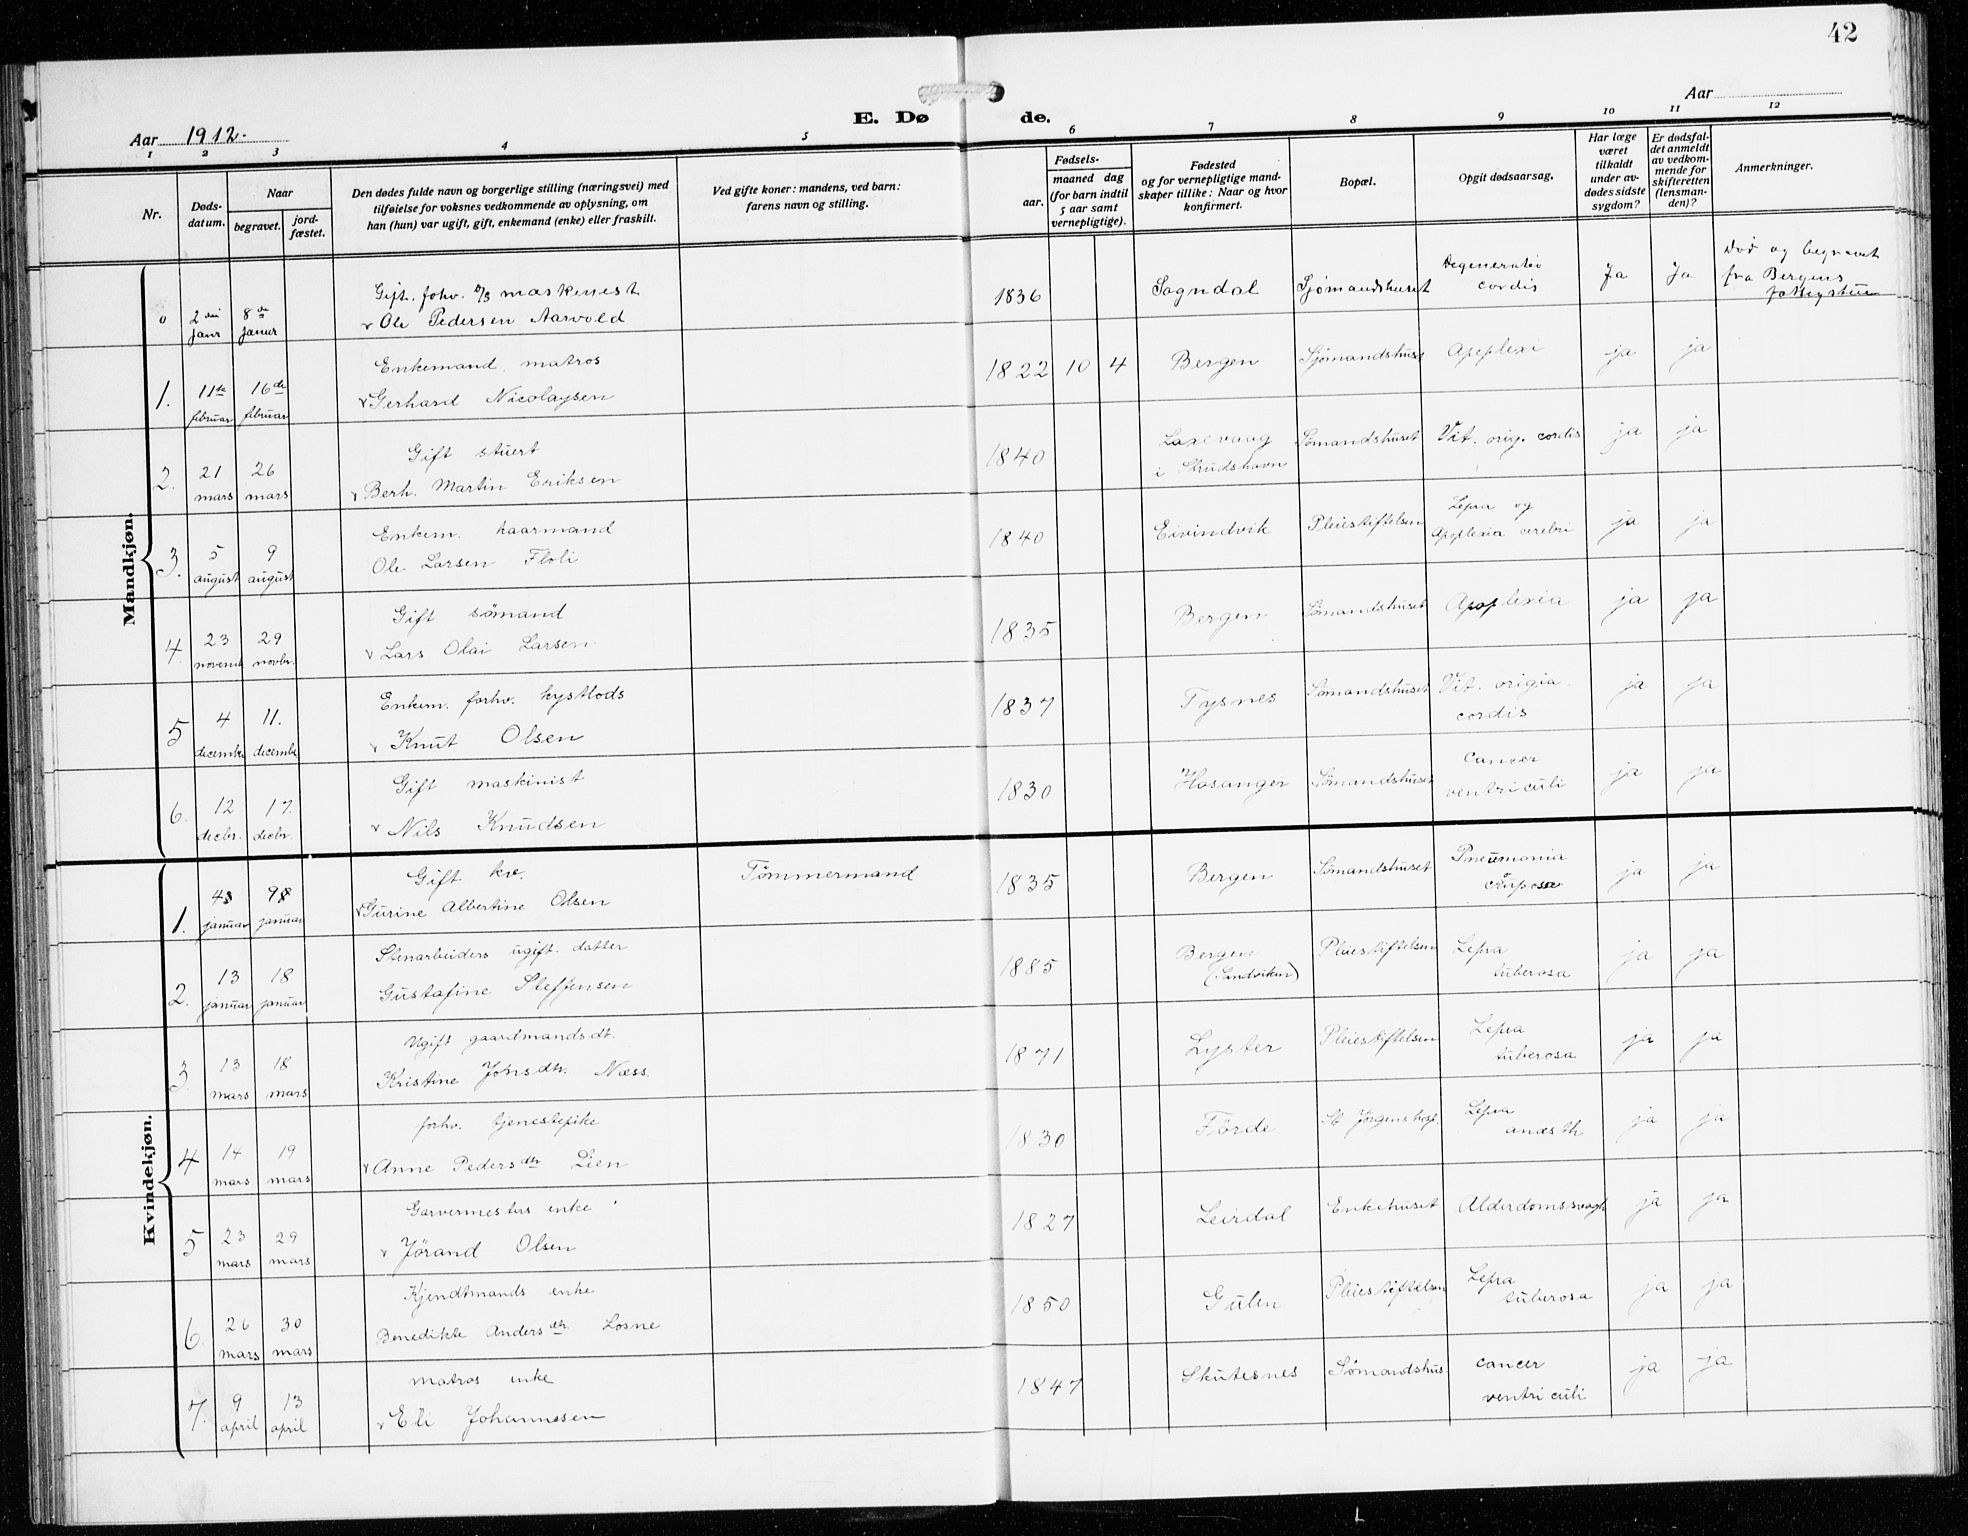 42
E. Døde.
Aar 1912.
Aar
1 2 3 4 5 6 7 8 9 10 11 12
Nr.
Døds-
datum.
Naar
begravet.
jord-
fæstet.
Den dødes fulde navn og borgerlige stilling (næringsvei) med
tilføielse for voksnes vedkommende av oplysning, om
han (hun) var ugift, gift, enkemand (enke) eller fraskilt.
Ved gifte koner: mandens, ved barn:
farens navn og stilling.
Fødsels-
aar.
maaned dag
(for barn indtil
5 aar samt
vernepligtige).
Fødested
og for vernepligtige mand-
skaper tillike: Naar og hvor
konfirmert.
Bopæl.
Opgit dødsaarsag.
Har læge
været
tilkaldt
under av-
dødes sidste
sygdom?
Er dødsfal-
det anmeldt
av vedkom-
mende for
skifteretten
(lensman-
den)?
Anmerkninger.
Mandkjøn.
0 2den janr 8de janur Gift. forh. maskenest
Ole Pedersen Aarvold 1836 Sogndal Sjømandshuset Degeneratio cordis Ja Ja Død og begravet
fra Bergens
1. 11te februar 16de februar Enkemand matros
Gerhard Nicolaysen 1822 10 4 Bergen Sjømandshuset Apoplexi ja ja
2. 21 mars 26 mars Gift stuert
Berh. Martin Eriksen 1840 Laxevaag
i Strudshavn Sømandshuset Vit. orig. cordis ja ja
3. 5 august 9 august Enkem. haarmand
Ole Larsen Floli 1840 Eivindvik Pleiestiftelsen Lepra og
Apoplexia cerebri ja ja
4. 23 novemb 29 novbr. Gift sømand
Lars Olai Larsen 1835 Bergen Sømandshuset Apoplexia ja ja
5 4 decembr 11. decembr Enkem. forhv. kystlods
Knut Olsen 1837 Tysnes Sømandshuset Vit. origia
cordis ja ja
6. 12 decbr. 17. decbr. Gift maskinist
Nils Knudsen 1830 Hosanger Sømandshuset cancer
ventriculi ja ja
Kvindekjøn.
1. januar januar Gift kv.
Gurine Albertine Olsen Tømmermand 1835 Bergen Sømandshuset Pneumonia
ja ja
2. 13 januar 18 januar Stenarbeiders ugift. datter
Gustafine Steffensen 1885 Bergen
(Sandviken) Pleiestiftelsen Lepra
tuberosa ja ja
3. 13 mars 18 mars Ugift gaardmandsdt.
Kristine Jonsdtr. Næss. 1871 Lyster Pleiestiftelsen Lepra
tuberosa ja ja
4 14 mars 19 mars forhv. tjenestepike
Anne Pedersdtr Lien 1830 Førde St Jørgens hosp. Lepra
anæsth ja ja
5 23 mars 29 mars Garvermesters enke
Jørand Olsen 1827 Leirdal Enkehuset Alderdomssvagh ja ja
6. 26 mars 30 mars Kjendtmands enke
Benedikte Andersdtr. Losne 1850 Gulen Pleiestiftelsen Lepra
tuberosa ja ja
7. 9 april 13 april matros enke
Eli Johannesen 1847 Skutesnes Sømandshus cancer
ventriculi ja ja